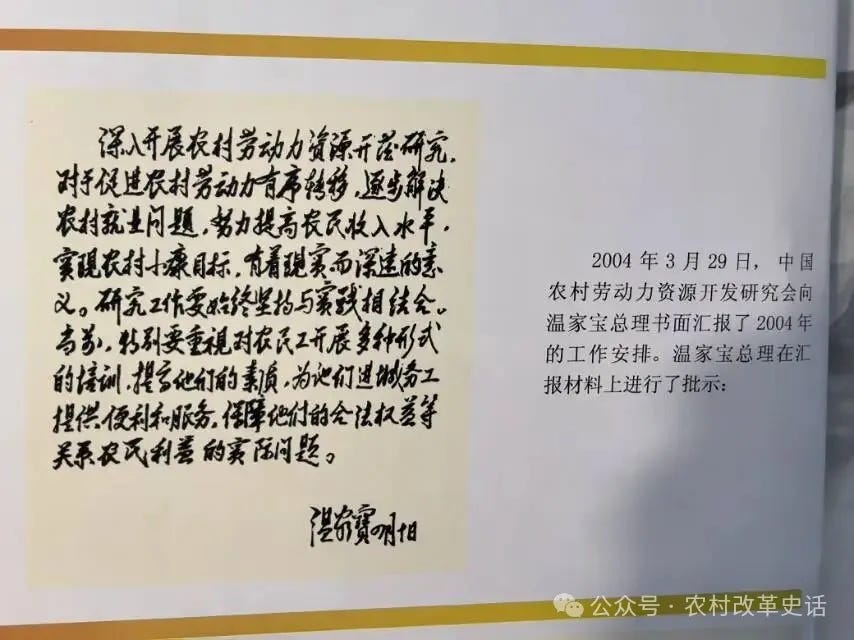 深入开展农村劳动力资源开发研究，
对于促进农村劳动力有序转移，逐步解决
农村就业问题，努力提高农民收入水平，
实现农村小康目标，有着现实而深远的意
义。研究工作要始终坚持与实践相结合。
当前，特别要重视对农民工开展多种形式
的培训，提高他们的素质，为他们进城务工
提供便利和服务，保障他们的合法权益等
关系农民利益的实际问题。
温家寶 四月十日
2004 年 3 月 29 日，中国
农村劳动力资源开发研究会向
温家宝总理书面汇报了 2004 年
的工作安排。温家宝总理在汇
报材料上进行了批示：
公众号·农村改革史话